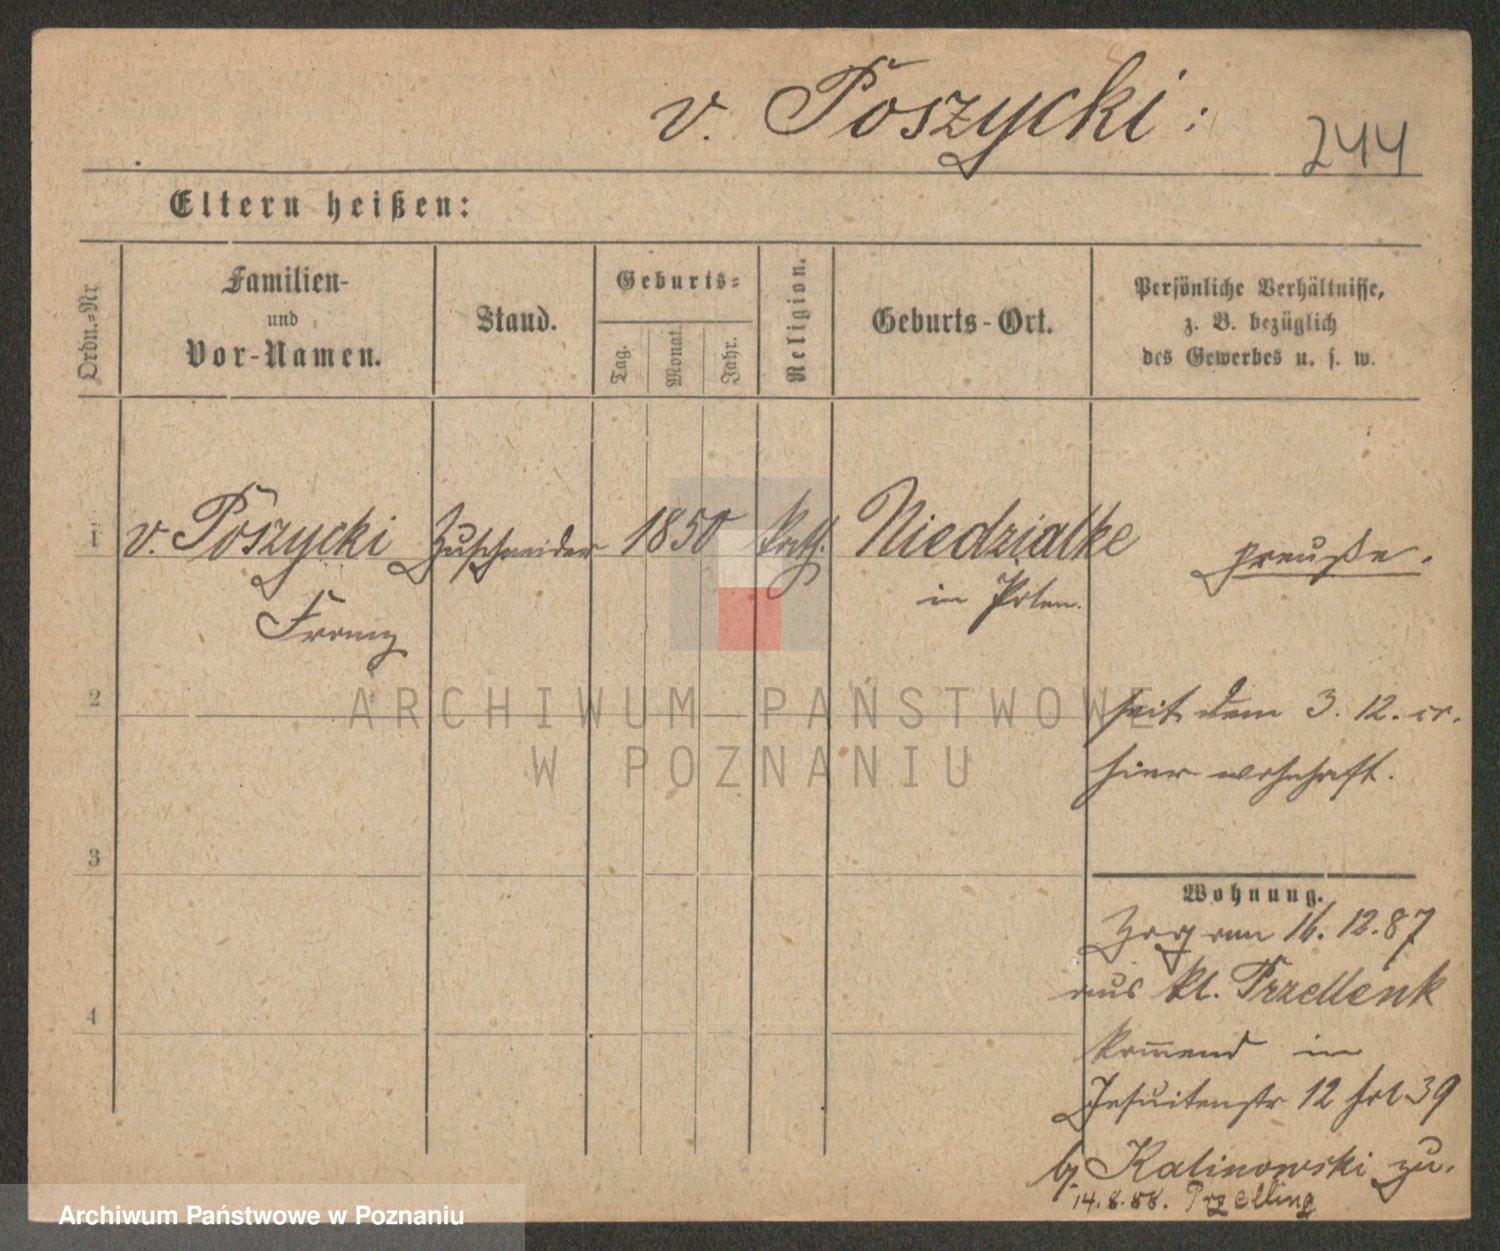 v. Poszycki:
244
Eltern heißen:
Ordn.-Nr
Familien-
und
Vor-Namen.
Stand.
Geburts-
Tag.
Monat.
Jahr.
Religion.
Geburts-Ort.
Persönliche Verhältnisse,
z. B. bezüglich
des Gewerbes u. s. w.
1 v. Poszycki Zuschneider 1850 kath. Niedzialke preuße.
Franz in Polen.
2
seit dem 3. 12. cr.
hier wohnhaft.
3
Wohnung.
Zog am 16. 12. 87
aus kl. Przellenk
4
kom̅end in
Jesuitenstr 12 fol 39
bj Kalinowski zu.
14.8.88. Przelling
ARCHIWUM PAŃSTWOWE
W POZNANIU
Archiwum Państwowe w Poznaniu